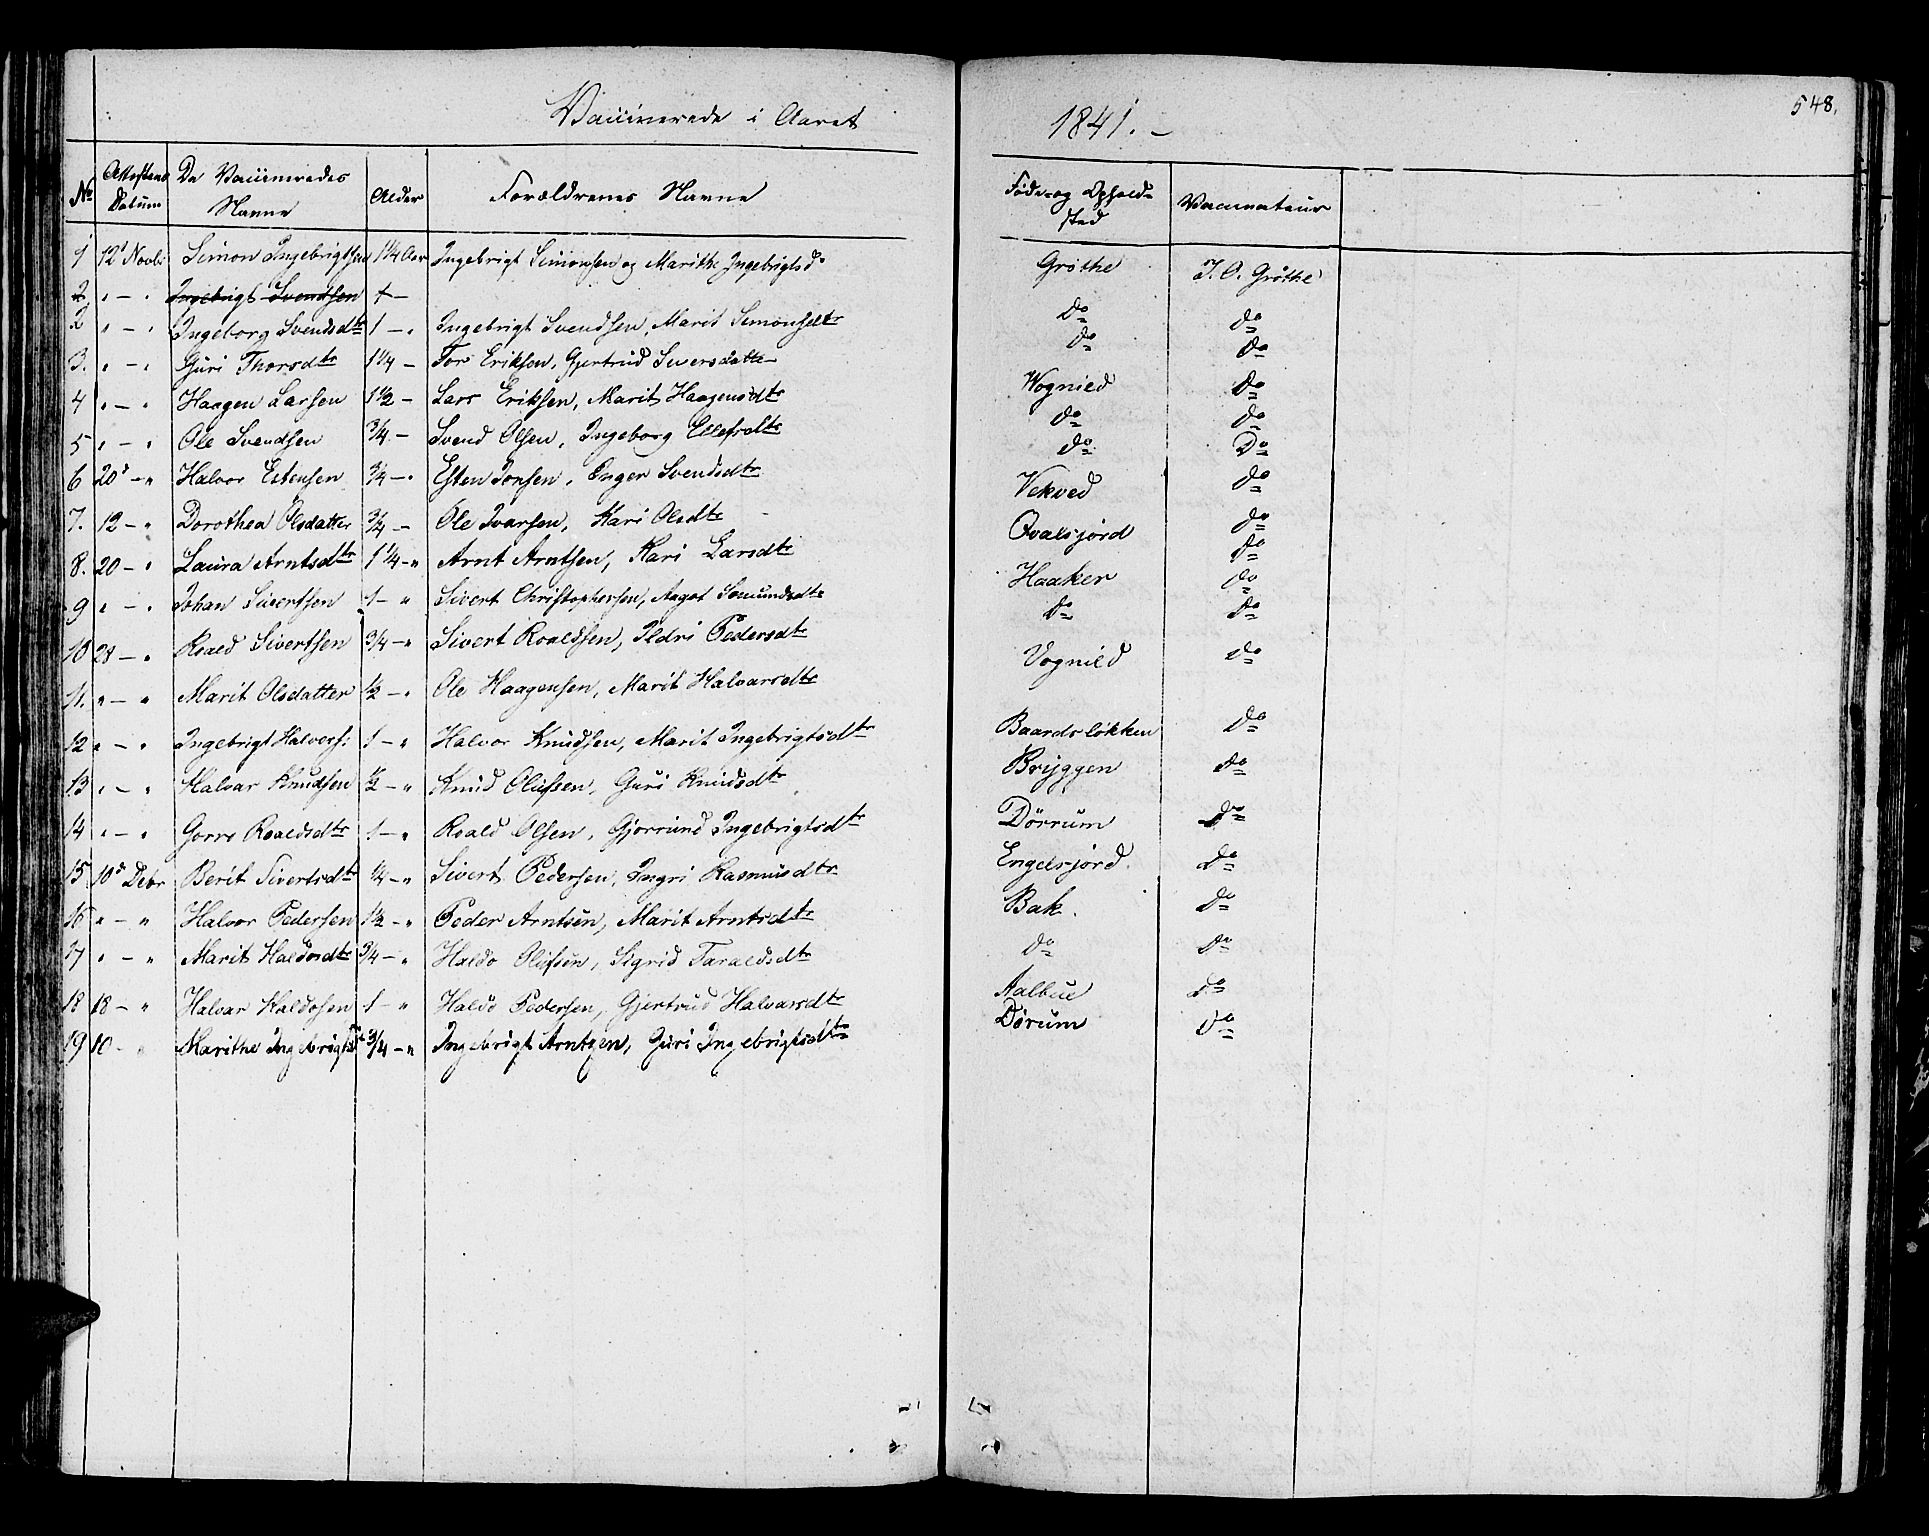 548.
Vaccinerede i Aaret 1841. –
No Attestens Datum De Vaccineredes Navne Alder Forældrenes Navne Føde- og Opholds- sted Vaccinateur
1 12t Novbr Simon Ingebrigtsen 1 1/4 Aar Ingebrigt Simonsen og Marithe Ingebrigtsd. Grøthe J. O. Grøthe
2 " – " Ingebrigt Svendsen 1 –
2 " – " Ingeborg Svendsdtr 1 – " Ingebrigt Svendsen, Marit Simonsdtr do do
3. " – " Guri Thorsdtr 1 1/4 – Tor Eriksen, Gjertrud Seversdatter do do
4 " – " Haagen Larsen 1 1/2 – Lars Eriksen, Marit Haagensdtr Wognild do
5 " – " Ole Svendsen 3/4 – Svend Olsen, Ingeborg Ellefsdtr do do
6 20d – " Halvor Estensen 3/4 – " Esten Jonsen, Inger Svendsdtr do Do
7. 12 – " Dorothea Olsdatter 3/4 – Ole Ivarsen, Kari Olsdtr Vekved do
8. 20 – " Laura Arntsdtr 1 1/4 – " Arnt Arntsen, Kari Larsdtr Ovalsjord do
do
9 " – " Johan Sivertsen 1 – " Sivert Christophersen, Aagot Somundsdtr Haaker do
10 28 – " Roald Sivertsen 3/4 – " Sivert Roaldsen, Ildri Pedersdtr do do
11. " – " Marit Olsdatter 1/2 – " Ole Haagensen, Marit Halvorsdtr Vognild do
12 " – " Ingebrigt Halvers: 1 – " Halvor Knudsen, Marit Ingebrigtsdtr Baardsløkken do
13 " – " Halvar Knudsen 1/2 – " Knud Olufsen, Guri Knudsdtr Bryggen do
14 " – " Gorro Roaldsdtr 1 – " Roald Olsen, Gjorrund Ingebrigtsdtr Dørrum do
15 10d Debr Berit Sivertsdtr 1/4 – " Sivert Pedersen, Ingri Rasmusdtr Engelsjord. do
16 " – " Halvor Pedersen 1 1/2 – " Peder Arntsen, Marit Arntsdtr Bak. do
17 " – " Marit Haldosdtr 3/4 – " Haldo Olufsen, Sigrid Taraldsdtr do do
18 18 – " Halvar Haldosen 1 – " Haldo Pedersen, Gjertrud Halvarsdtr Aalbue do
19 10 – " Marithe Ingebrigtsdtr 3/4 – " Ingebrigt Arntzen, Guri Ingebrigtsdtr Dørum do